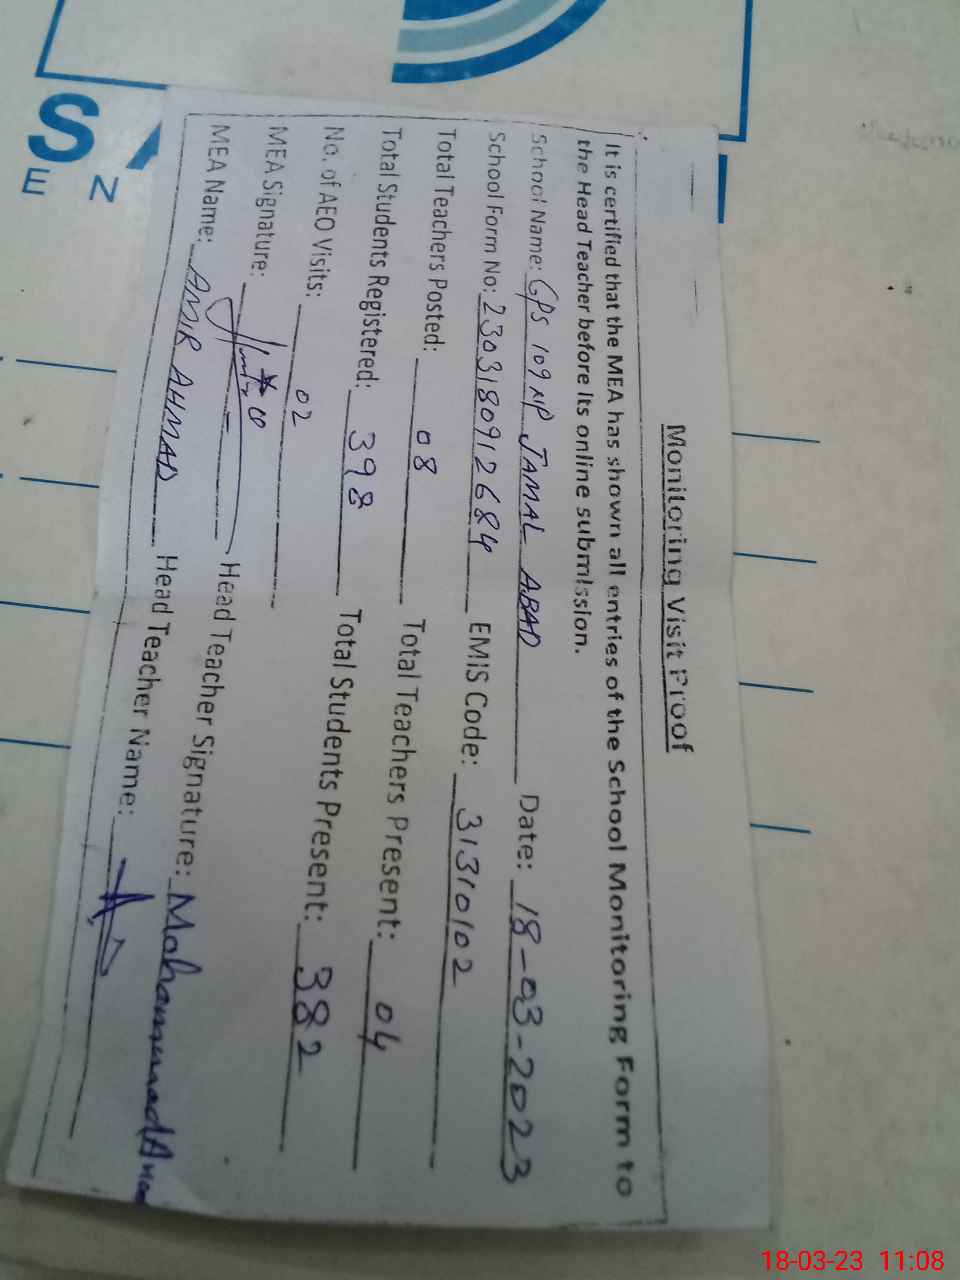 Monitoring Visit Proof
It is certified that the MEA has shown all entries of the School Monitoring Form to
the Head Teacher before its online submission.
School Name: GPS 109 NP JAMAL ABAD Date: 18-03-2023
School Form No: 2303180912684 EMIS Code: 31310102
Total Teachers Posted: 08 Total Teachers Present: 04
Total Students Registered: 398 Total Students Present: 382
No. of AEO Visits: 02
MEA Signature: Head Teacher Signature: Mohammad
MEA Name: AMIR AHMAD Head Teacher Name:
S
E
N
18-03-23 11:08